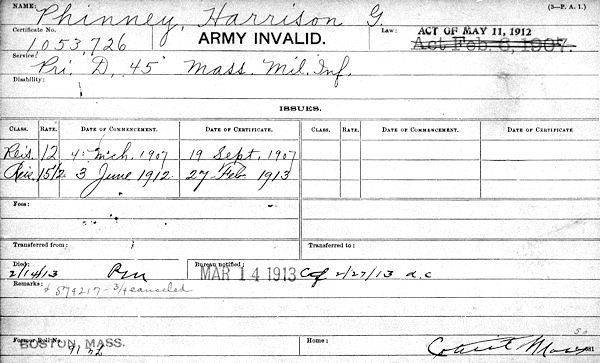 NAME: Phinney, Harrison G. (3—P. A. I.)
Certificate No. 1053,726
ARMY INVALID.
Law: ACT OF MAY 11, 1912
Act Feb. 6, 1907.
Service: Pri. D, 45" Mass. Mil. Inf.
Disability:
ISSUES.
CLASS. RATE. DATE OF COMMENCEMENT. DATE OF CERTIFICATE. CLASS. RATE. DATE OF COMMENCEMENT. DATE OF CERTIFICATE
Reis. 12 4" Mch. 1907 19 Sept. 1907
Reis. 15 1/2 3 June 1912 27 Feb 1913
Fees:
Transferred from: Transferred to:
Died: Bureau notified:
2/14/13 MAR 14 1913 2/27/13
Remarks:
874217
Former Roll No.
BOSTON, MASS.
Home:
Cotuit Mass